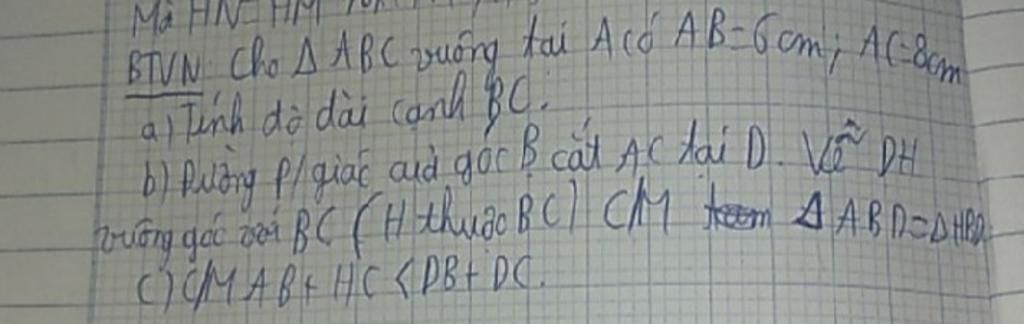 Mà HN=HM
BTVN: Cho Δ ABC vuông tại A có AB=6cm; AC=8cm
a) Tính độ dài cạnh BC.
b) Đường p/giác của góc B cắt AC tại D. Vẽ DH
vuông góc với BC (H thuộc BC) CM Δ ABD=ΔHBD
c) CM AB+HC<DB+DC.